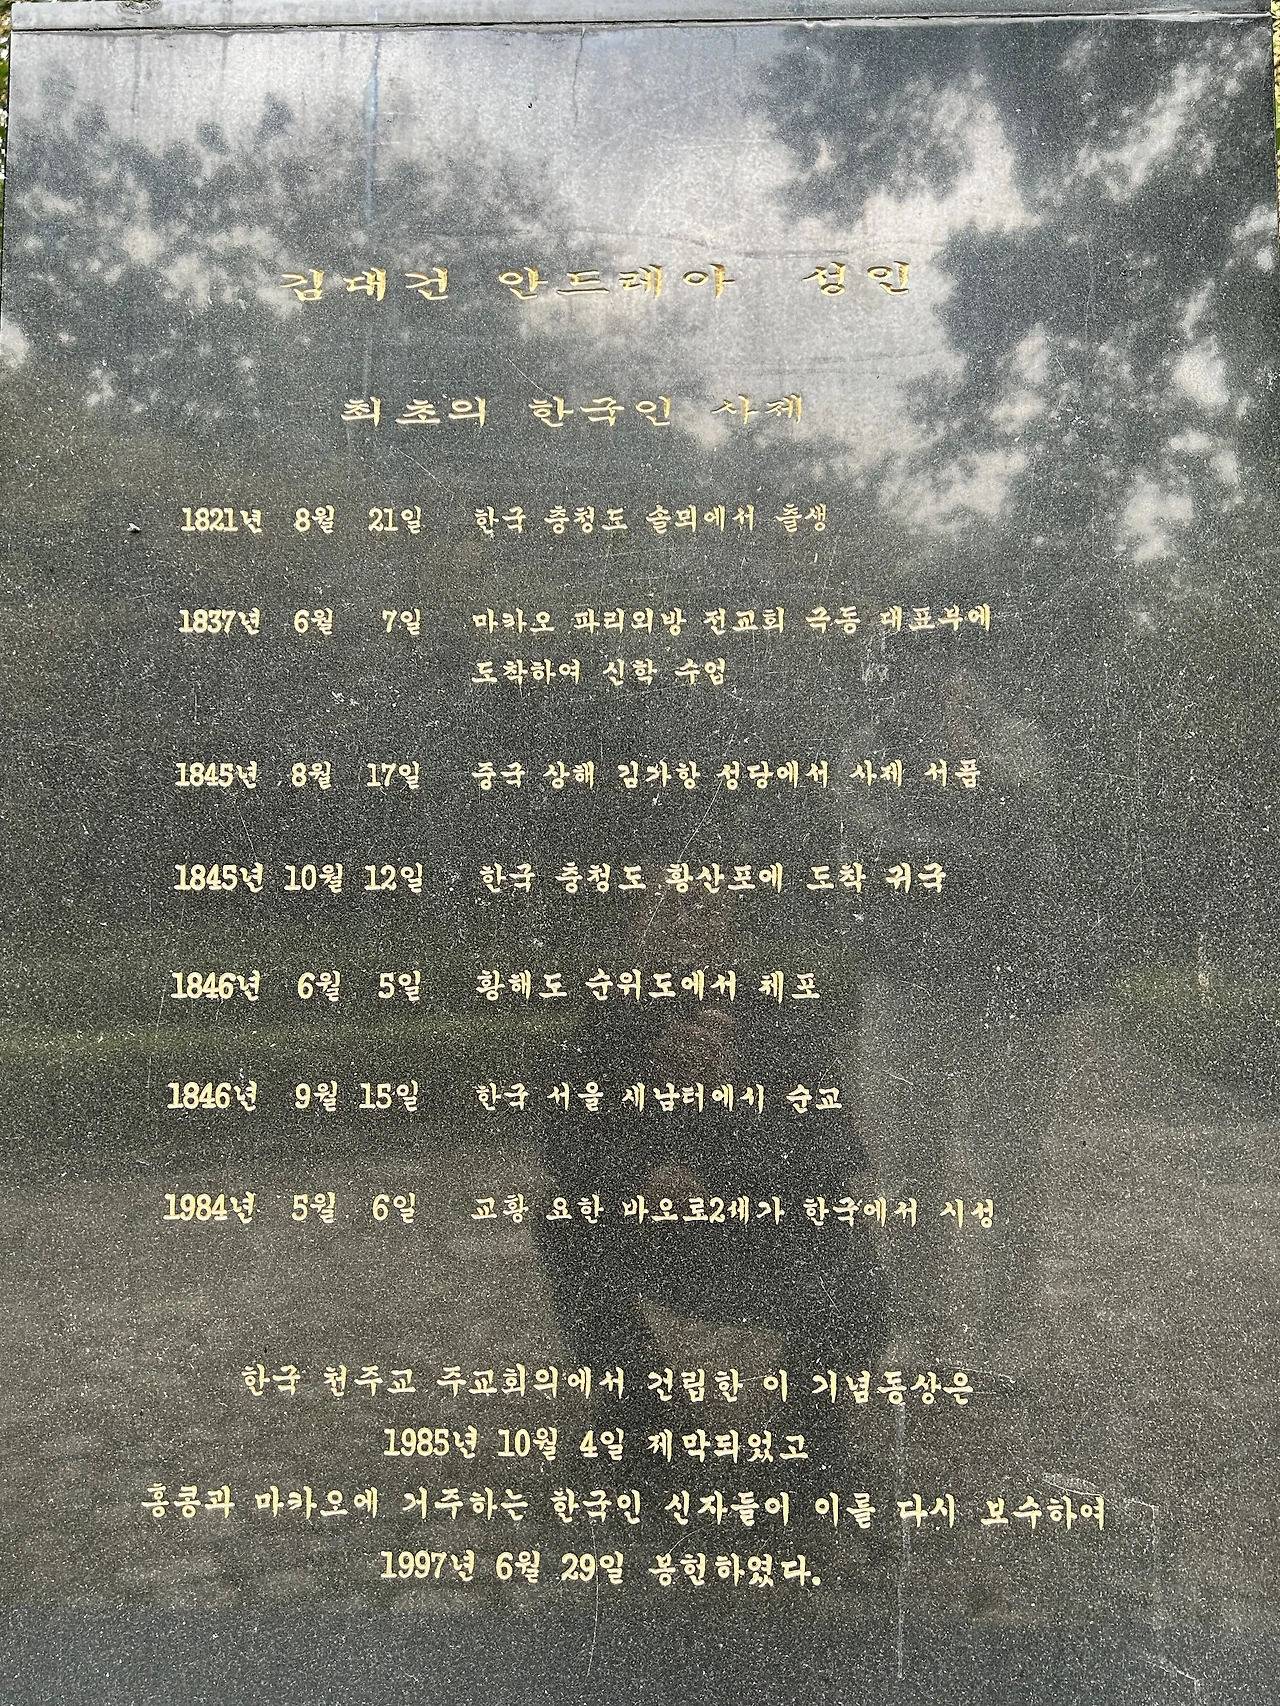 김대건 안드레아 성인
최초의 한국인 사제
1821년 8월 21일 한국 충청도 솔뫼에서 출생
1837년 6월 7일 마카오 파리외방 전교회 극동 대표부에
도착하여 신학 수업
1845년 8월 17일 중국 상해 김가항 성당에서 사제 서품
1845년 10월 12일 한국 충청도 황산포에 도착 귀국
1846년 6월 5일 황해도 순위도에서 체포
1846년 9월 15일 한국 서울 새남터에서 순교
1984년 5월 6일 교황 요한 바오로2세가 한국에서 시성
한국 천주교 주교회의에서 건립한 이 기념동상은
1985년 10월 4일 제막되었고
홍콩과 마카오에 거주하는 한국인 신자들이 이를 다시 보수하여
1997년 6월 29일 봉헌하였다.